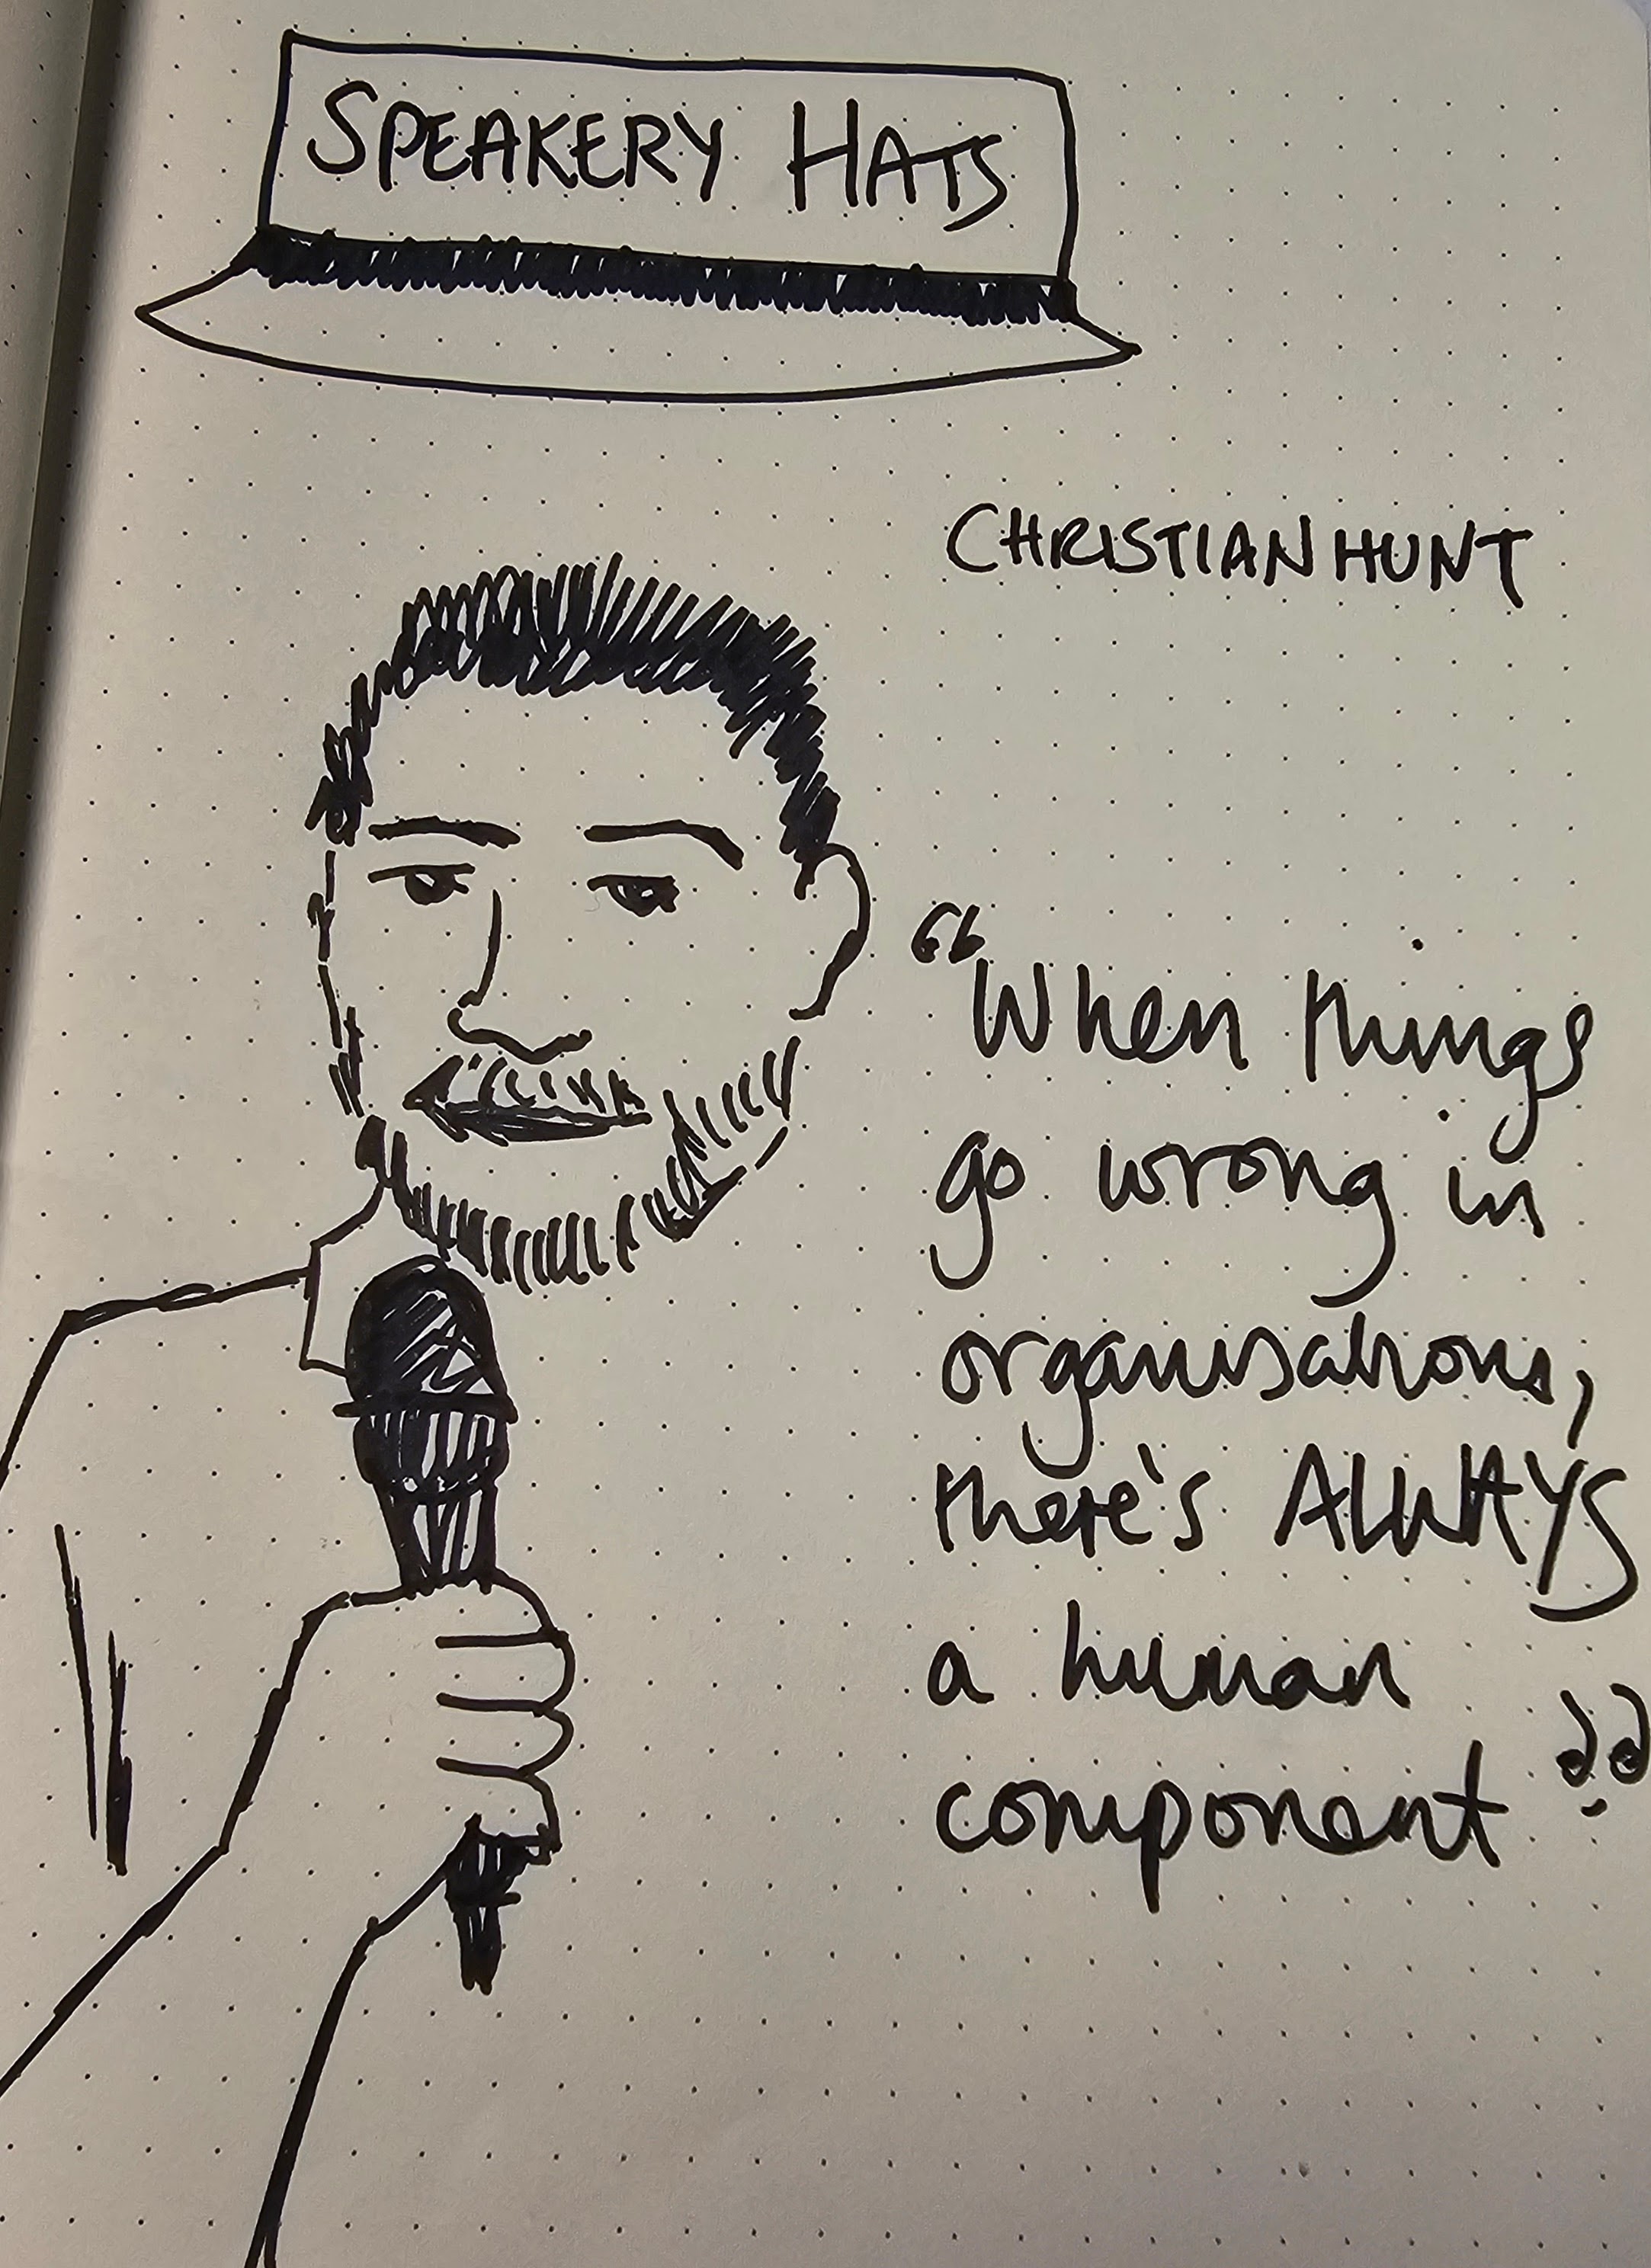 SPEAKERY HATS
CHRISTIAN HUNT
“When things
go wrong in
organisations,
there's ALWAYS
a human
component”